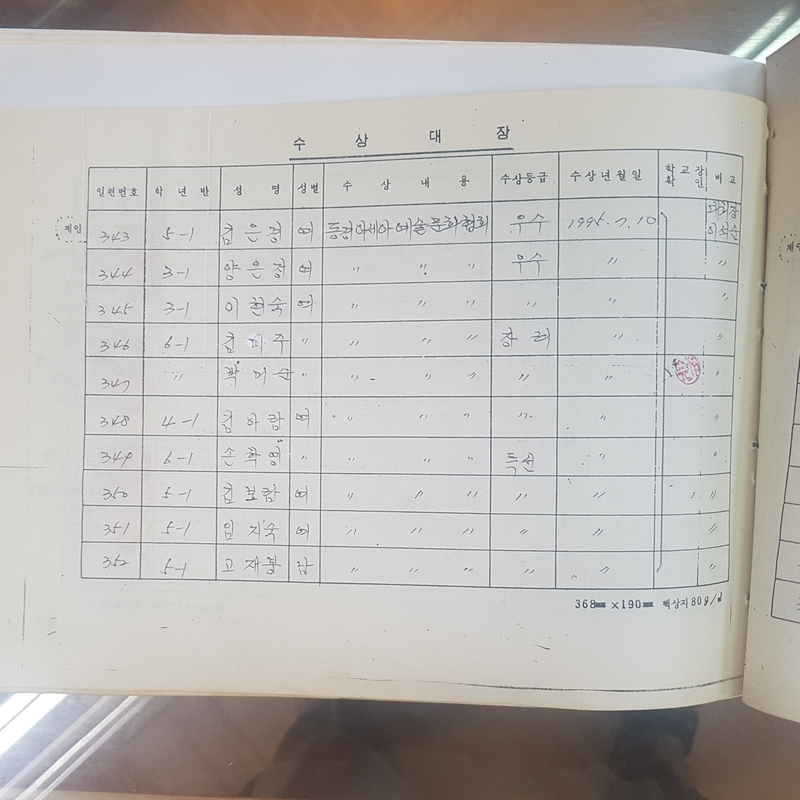 수 상 대 장
일련번호 학 년 반 성 명 성별 수 상 내 용 수상등급 수상년월일 학교장확인 비고
343 5-1 김은경 여 동경아세아예술문화협회 우수 1995.7.10
344 3-1 양은정 여 〃 〃 〃 우수 〃 〃
345 3-1 이현숙 여 〃 〃 〃 〃 〃 〃
346 6-1 김 주 〃 〃 〃 〃 장려 〃 〃
347 〃 곽미순 〃 〃 〃 〃 〃 〃 〃
348 4-1 김아람 여 〃 〃 〃 〃 〃 〃
349 6-1 손학영 〃 〃 〃 〃 특선 〃 〃
350 5-1 김보람 여 〃 〃 〃 〃 〃 〃
351 5-1 임지숙 여 〃 〃 〃 〃 〃 〃
352 5-1 고재봉 남 〃 〃 〃 〃 〃 〃
368㎜ ×190㎜ 백상지 80g/㎡